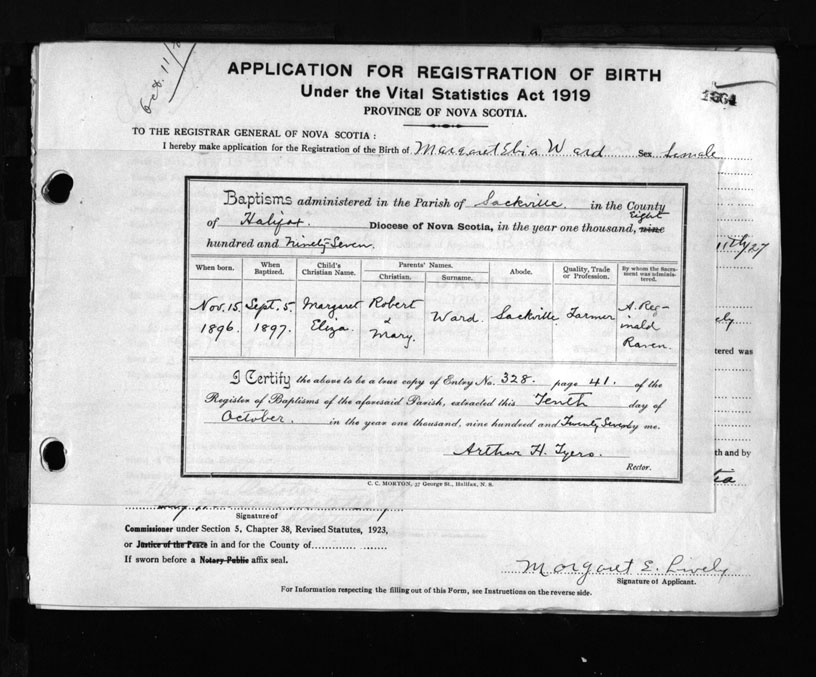 Oct. 11/
APPLICATION FOR REGISTRATION OF BIRTH
Under the Vital Statistics Act 1919
PROVINCE OF NOVA SCOTIA.
1564
TO THE REGISTRAR GENERAL OF NOVA SCOTIA :
I hereby make application for the Registration of the Birth of Margaret Eliza Ward Sex female
Baptisms administered in the Parish of Sackville. in the County
of Halifax. Diocese of Nova Scotia, in the year one thousand, nine Eight
hundred and Ninety-Seven.
When born. When Baptized. Child's Christian Name. Parents' Names. Christian. Surname. Abode. Quality, Trade or Profession. By whom the Sacrament was administered.
Nov. 15. Sept. 5. Margaret Robert Ward. Sackville. Farmer A. Reg-
1896. 1897. Eliza. & Mary. inald
Raven.
I Certify the above to be a true copy of Entry No. 328. page 41. of the
Register of Baptisms of the aforesaid Parish, extracted this Tenth day of
October. in the year one thousand, nine hundred and Twenty Seven by me.
Arthur H. Tyers.
Rector.
C. C. MORTON, 37 George St., Halifax, N. S.
27
ely
tered was
th and by
tia
Signature of
Commissioner under Section 5, Chapter 38, Revised Statutes, 1923,
or Justice of the Peace in and for the County of
If sworn before a Notary Public affix seal.
Margaret E. Lively
Signature of Applicant.
For Information respecting the filling out of this Form, see Instructions on the reverse side.